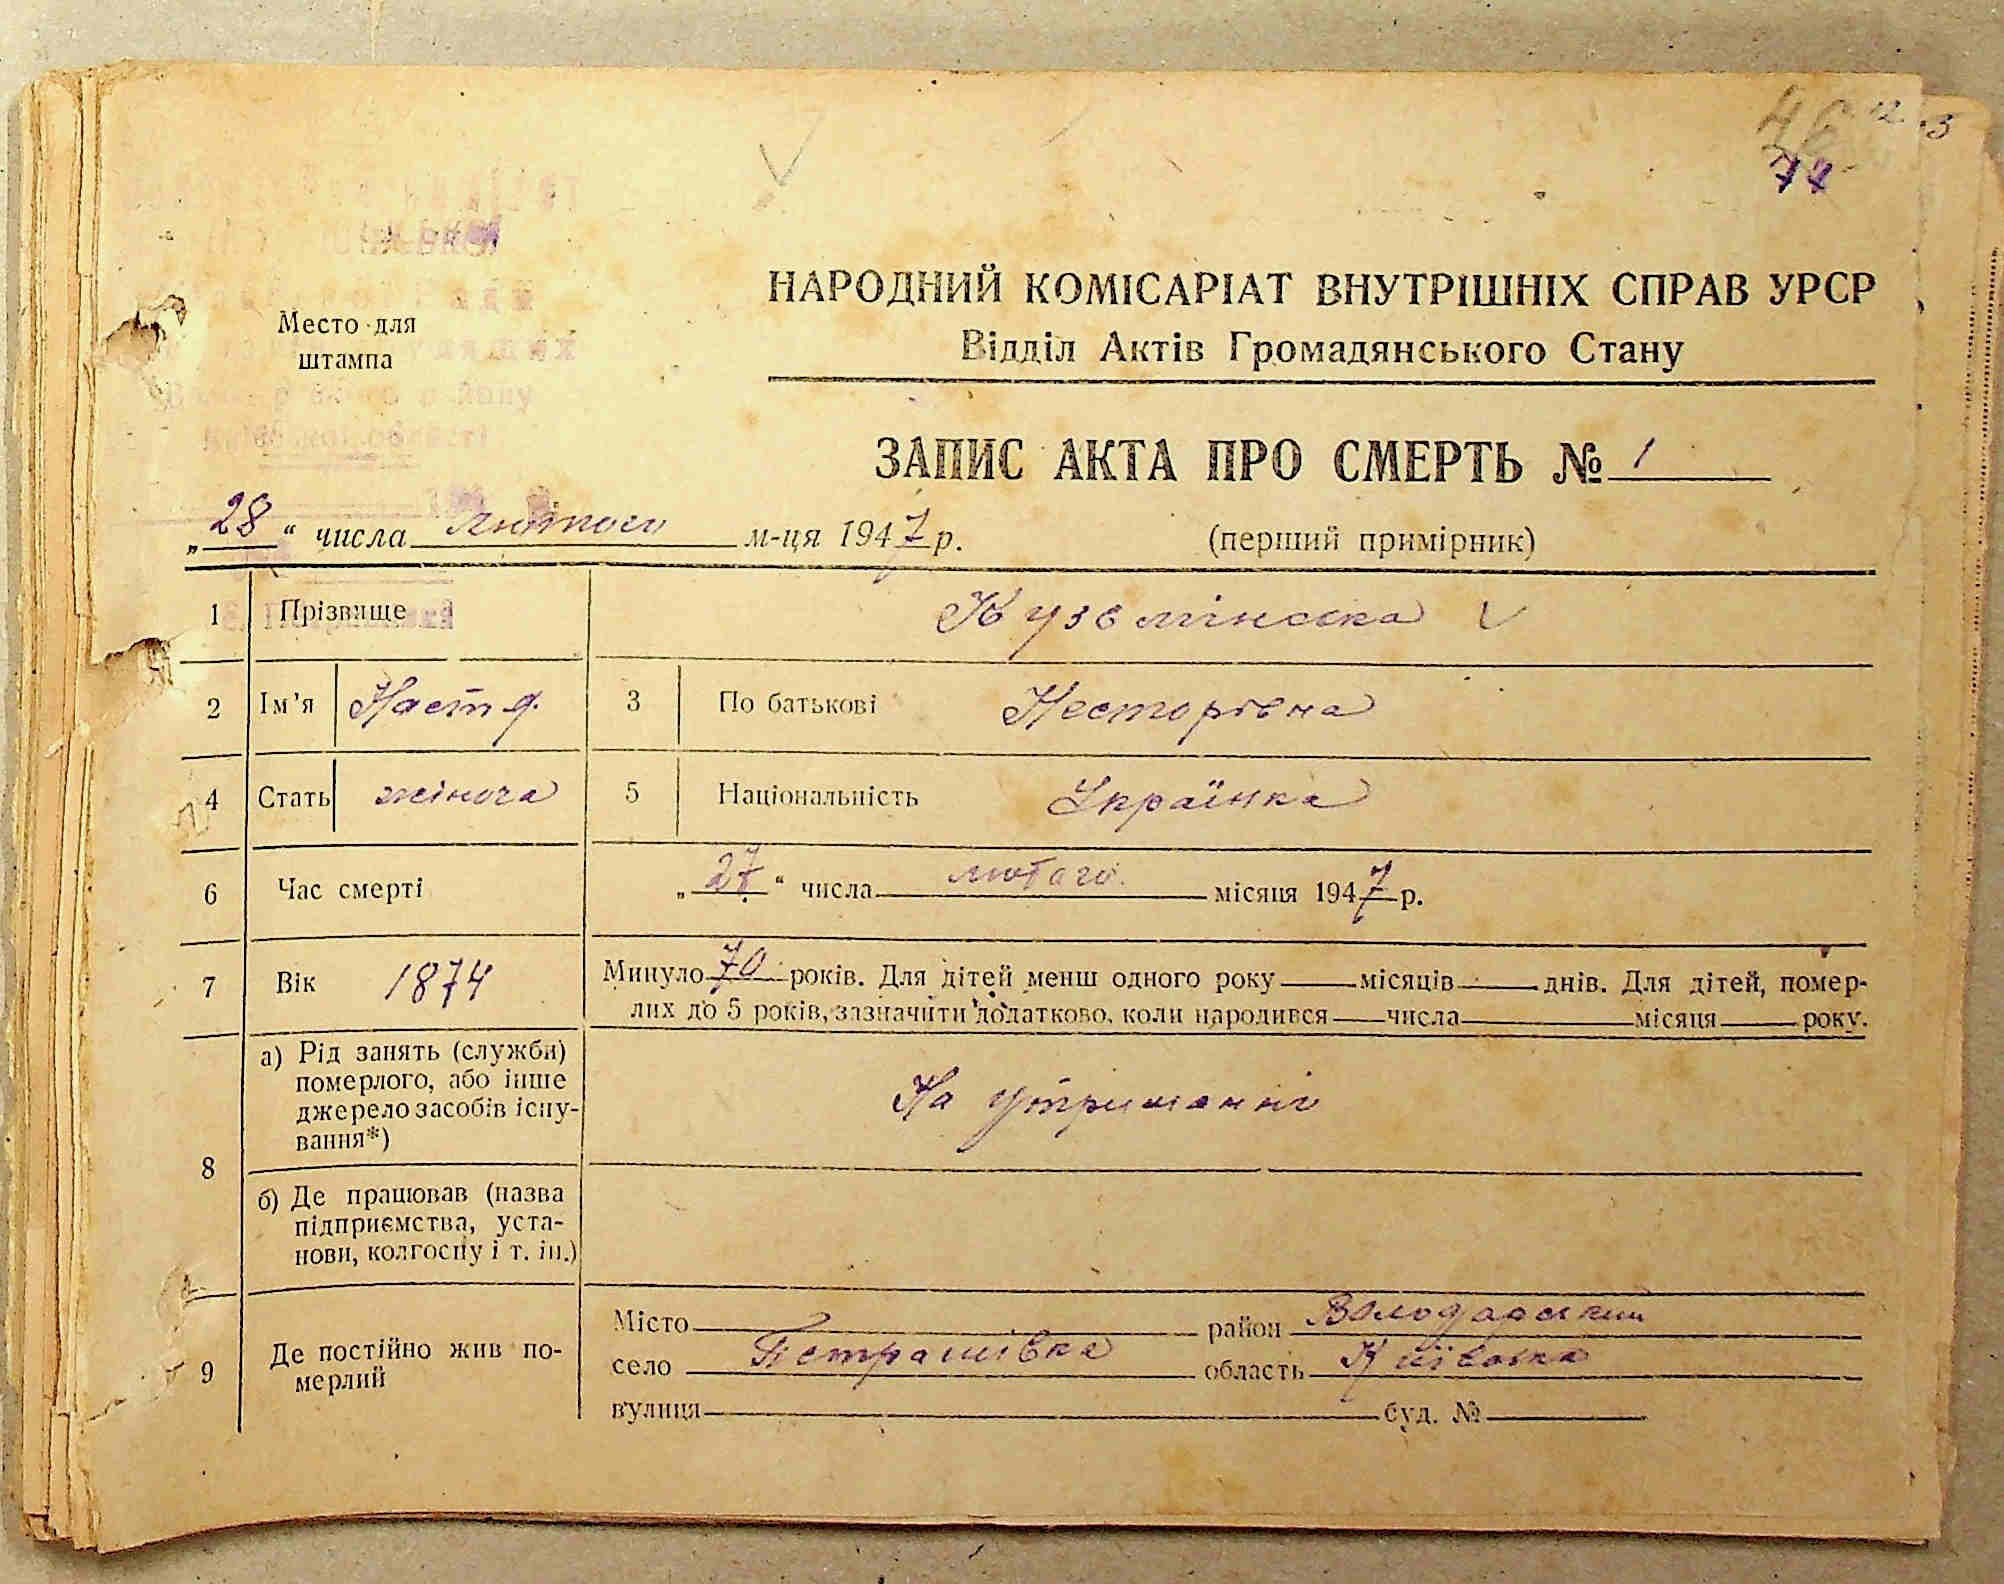 46
77
НАРОДНИЙ КОМІСАРІАТ ВНУТРІШНІХ СПРАВ УРСР
Відділ Актів Громадянського Стану
Место для
штампа
області
ЗАПИС АКТА ПРО СМЕРТЬ № 1
„28“ числа лютого м-ця 1947 р. (перший примірник)
1 Прізвище Кузьмінська
2 Ім'я Настя 3 По батькові Несторівна
4 Стать жіноча 5 Національність Українка
6 Час смерті „27“ числа лютого місяця 1947 р.
7 Вік 1874 Минуло 70 років. Для дітей менш одного року місяців днів. Для дітей, помер-
лих до 5 років, зазначити додатково, коли народився числа місяця року.
8 а) Рід занять (служби)
померлого, або інше
джерело засобів існу-
вання*)
На утриманні
б) Де працював (назва
підприємства, уста-
нови, колгоспу і т. ін.)
9 Де постійно жив по-
мерлий
Місто район Володарський
село Петрашівка область Київська
вулиця буд. №